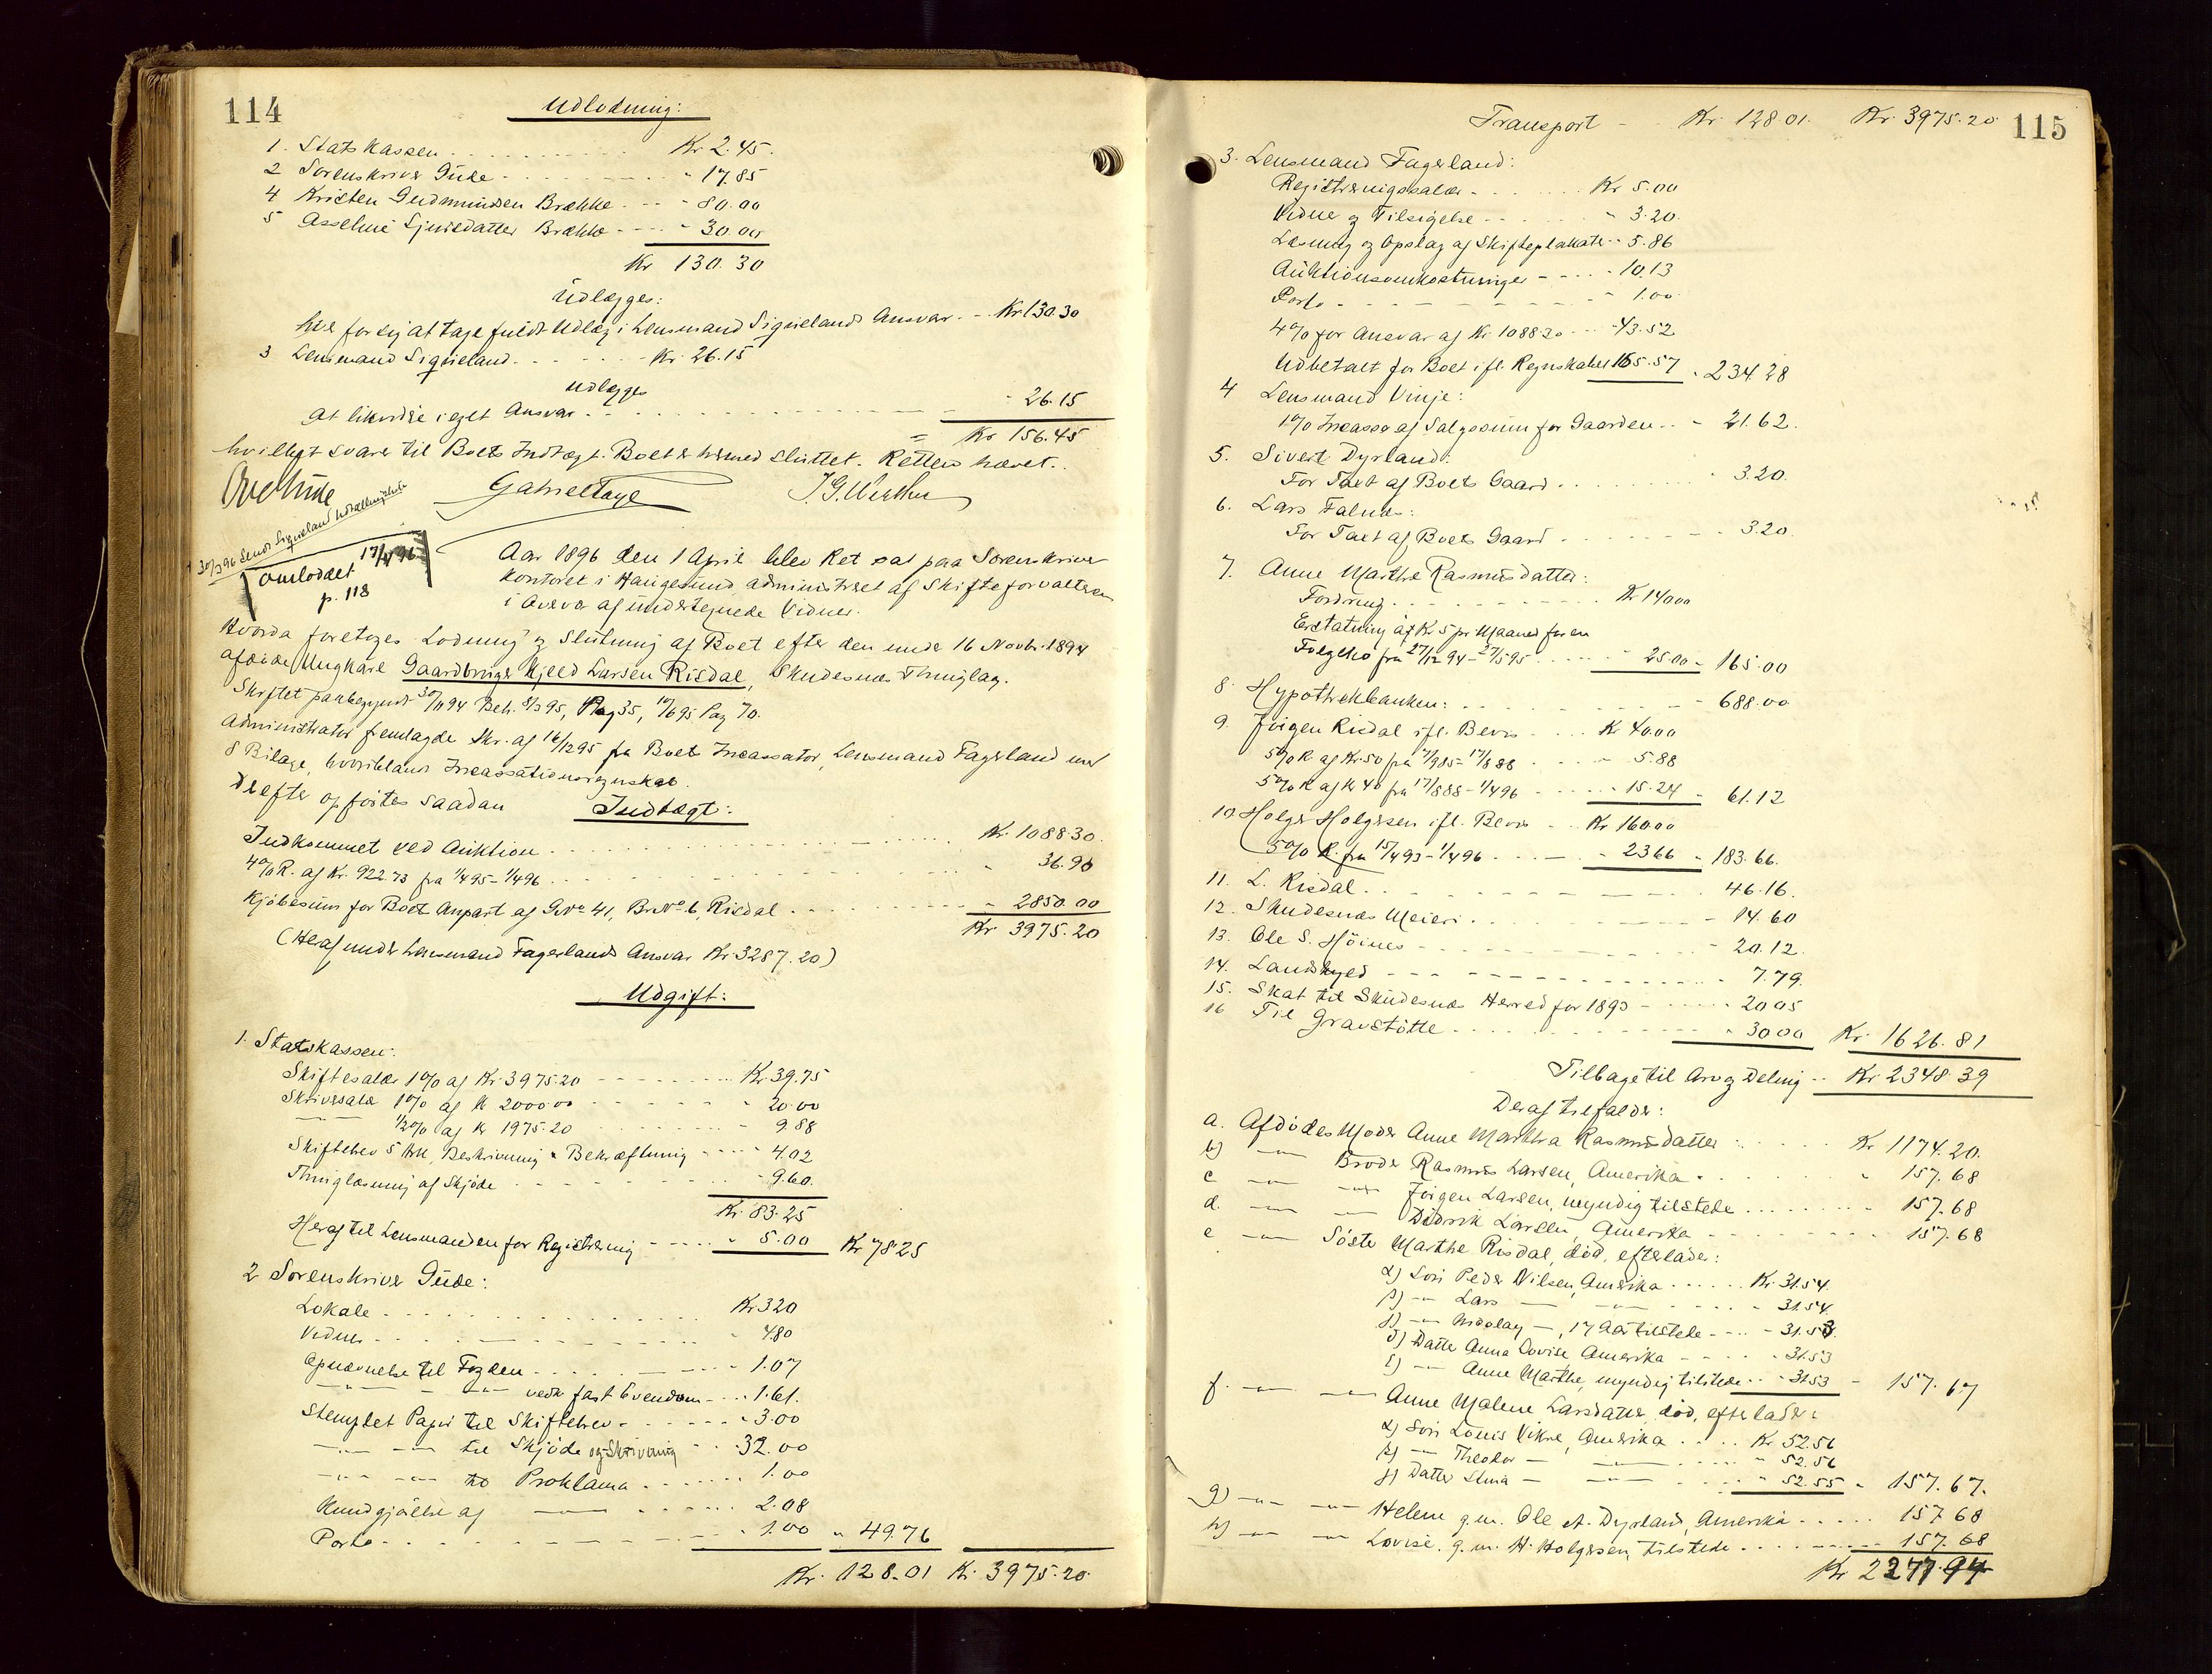 114
Udlodning:
1. Statskassen Kr 2.45.
2 Sorenskriver Gude - 17.85
4 Kristen Gudmundsen Brække - 80.00
5 Asseline Sjursdatter Brække - 30.00
Kr 130.30
Udlægges:
hver for sig at tage fuldt Udlæg i Lensmand Siquelands Ansvar Kr 130.30
3 Lensmand Siqueland Kr. 26.15
Udlægges
at likvidere i eget Ansvar - 26.15
= Kr 156.45
hvilket svarer til Boets Indtægt. Boet er hermed sluttet. Retten hævet.
Ove Gude Gabriel Tage
30/3 96 Sendt Siqueland
Omloddet 17/4 96
p. 118
Aar 1896 den 1 April blev Ret sat paa Sorenskriver
kontoret i Haugesund administreret af Skifteforvalteren
i Overvær af undertegnede Vidner.
Hvorda foretoges Lodning og Slutning af Boet efter den under 16 Novbr. 1894
afdøde Ungkarl Gaardbruger Kjeld Larsen Risdal, Skudesnæs Thinglag.
Skiftet paabegyndt 30/11 94 Beh. 8/3 95, Pag 35, 14/6 95 Pag 70.
Administrator fremlagde Skr. af 16/12 95 fra Boets Incassator, Lensmand Fagerland med
8 Bilage, hvoriblandt Incassationsregnskab.
Derefter opførtes saadan Indtægt:
Indkommet ved Auktion Kr. 1088.30
4% R. af Kr. 922.73 fra 1/4 95 - 1/4 96 - 36.90
Kjøbesum for Boets Anpart af G.No 41, Br.No 6, Risdal - 2850.00
Kr 3975.20
(Heraf under Lensmand Fagerlands Ansvar Kr. 3287.20)
Udgift:
1. Statskassen:
Skiftesalær 1% af Kr. 3975.20 Kr. 39.75
Skriversalær 1% af Kr 2000.00 - 20.00
—"— 1/2% af Kr 1975.20 - 9.88
Skiftebrev 5 Ark, Beskrivning & Bekræftning - 4.02
Thinglæsning af Skjøde - 9.60.
Kr. 83.25
Heraf til Lensmanden for Registrering - 5.00 Kr 78.25
2 Sorenskriver Gude:
Lokale Kr. 3.20
Vidner - 4.80
Opnævnelse til Fogden - 1.07
—"— - —"— vedk. fast Eiendom - 1.61.
Stemplet Papir til Skiftebrev - 3.00
—"— —"— til Skjøde og Skrivning - 32.00
—"— —"— to Proklama - 1.00
Kundgjørelse af —"— - 2.08
Porto - 1.00 " 49.76
Kr. 128.01 Kr. 3975.20
115
Transport - Kr. 128.01. Kr. 3975.20
3. Lensmand Fagerland:
Registreringssalær Kr 5.00
Vidner og Tilsigelse - 3.20.
Læsning og Opslag af Skifteplakater - 5.86
Auktionsomkostninger - 10.13
Porto - 1.00
4% for Ansvar af Kr. 1088.30 - 43.52
Udbetalt for Boet ifl. Regnskabet 165.57 - 234.28
4 Lensmand Vinje:
1% Incasso af Salgssum for Gaarden - 21.62.
5. Sivert Dyrland:
For Taxt af Boets Gaard - 3.20.
6. Lars Falnæs:
For Taxt af Boets Gaard - 3.20.
7. Anne Marthe Rasmusdatter:
Fordring Kr 140.00
Erstatning af Kr. 5 pr Maaned for en
Folgeko fra 27/12 94 - 27/5 95 - 25.00 - 165.00
8. Hypothekbanken: - 688.00
9. Jørgen Risdal ifl. Bevis Kr 40.00
5% R af Kr. 50 fra 7/9 85 - 17/8 88 - 5.88
5% R af Kr 40 fra 17/8 88 - 1/4 96 - 15.24 - 61.12
10. Holger Holgersen ifl. Bevis Kr 160.00
5% R. fra 15/4 93 - 1/4 96 - 23.66 - 183.66.
11. L. Risdal - 46.16.
12. Skudesnæs Meieri - 14.60
13. Ole S. Höines - 20.12.
14. Landskyld - 7.79.
15. Skat til Skudesnæs Herred for 1893 - 20.05
16 Til Gravstøtte - 30.00 Kr. 1626.81
Tilbage til Arv og Deling Kr 2348.39
Deraf tilfalder:
a. Afdødes Moder Anne Marthe Rasmusdatter Kr. 1174.20.
b) —"— Broder Rasmus Larsen, Amerika " 157.68
c —"— —"— Jørgen Larsen, myndig tilstede - 157.68
d. —"— —"— Didrik Larsen, Amerika - 157.68
e —"— Søster Marthe Risdal, død, efterlader:
α) Søn Peder Nilsen, Amerika Kr. 31.54.
β) —"— Lars — —"— - 31.54.
γ) —"— Nikolay —, 17 Aar tilstede - 31.53.
δ) Datter Anna Lovise Amerika - 31.53
ε) —"— Anne Marthe, myndig tilstede - 31.53 - 157.67
f. —"— —"— Anne Malene Larsdatter, død, efterlader:
α) Søn Louis Vikre, Amerika Kr 52.56
β) —"— Theodor — —"— - 52.56
γ) Datter Stina — —"— " 52.55 - 157.67.
g) —"— —"— Helene g.m. Ole A. Dyrland, Amerika - 157.68
h) —"— —"— Lovise. g.m. H. Holgersen, tilstede - 157.68
Kr 2277.94